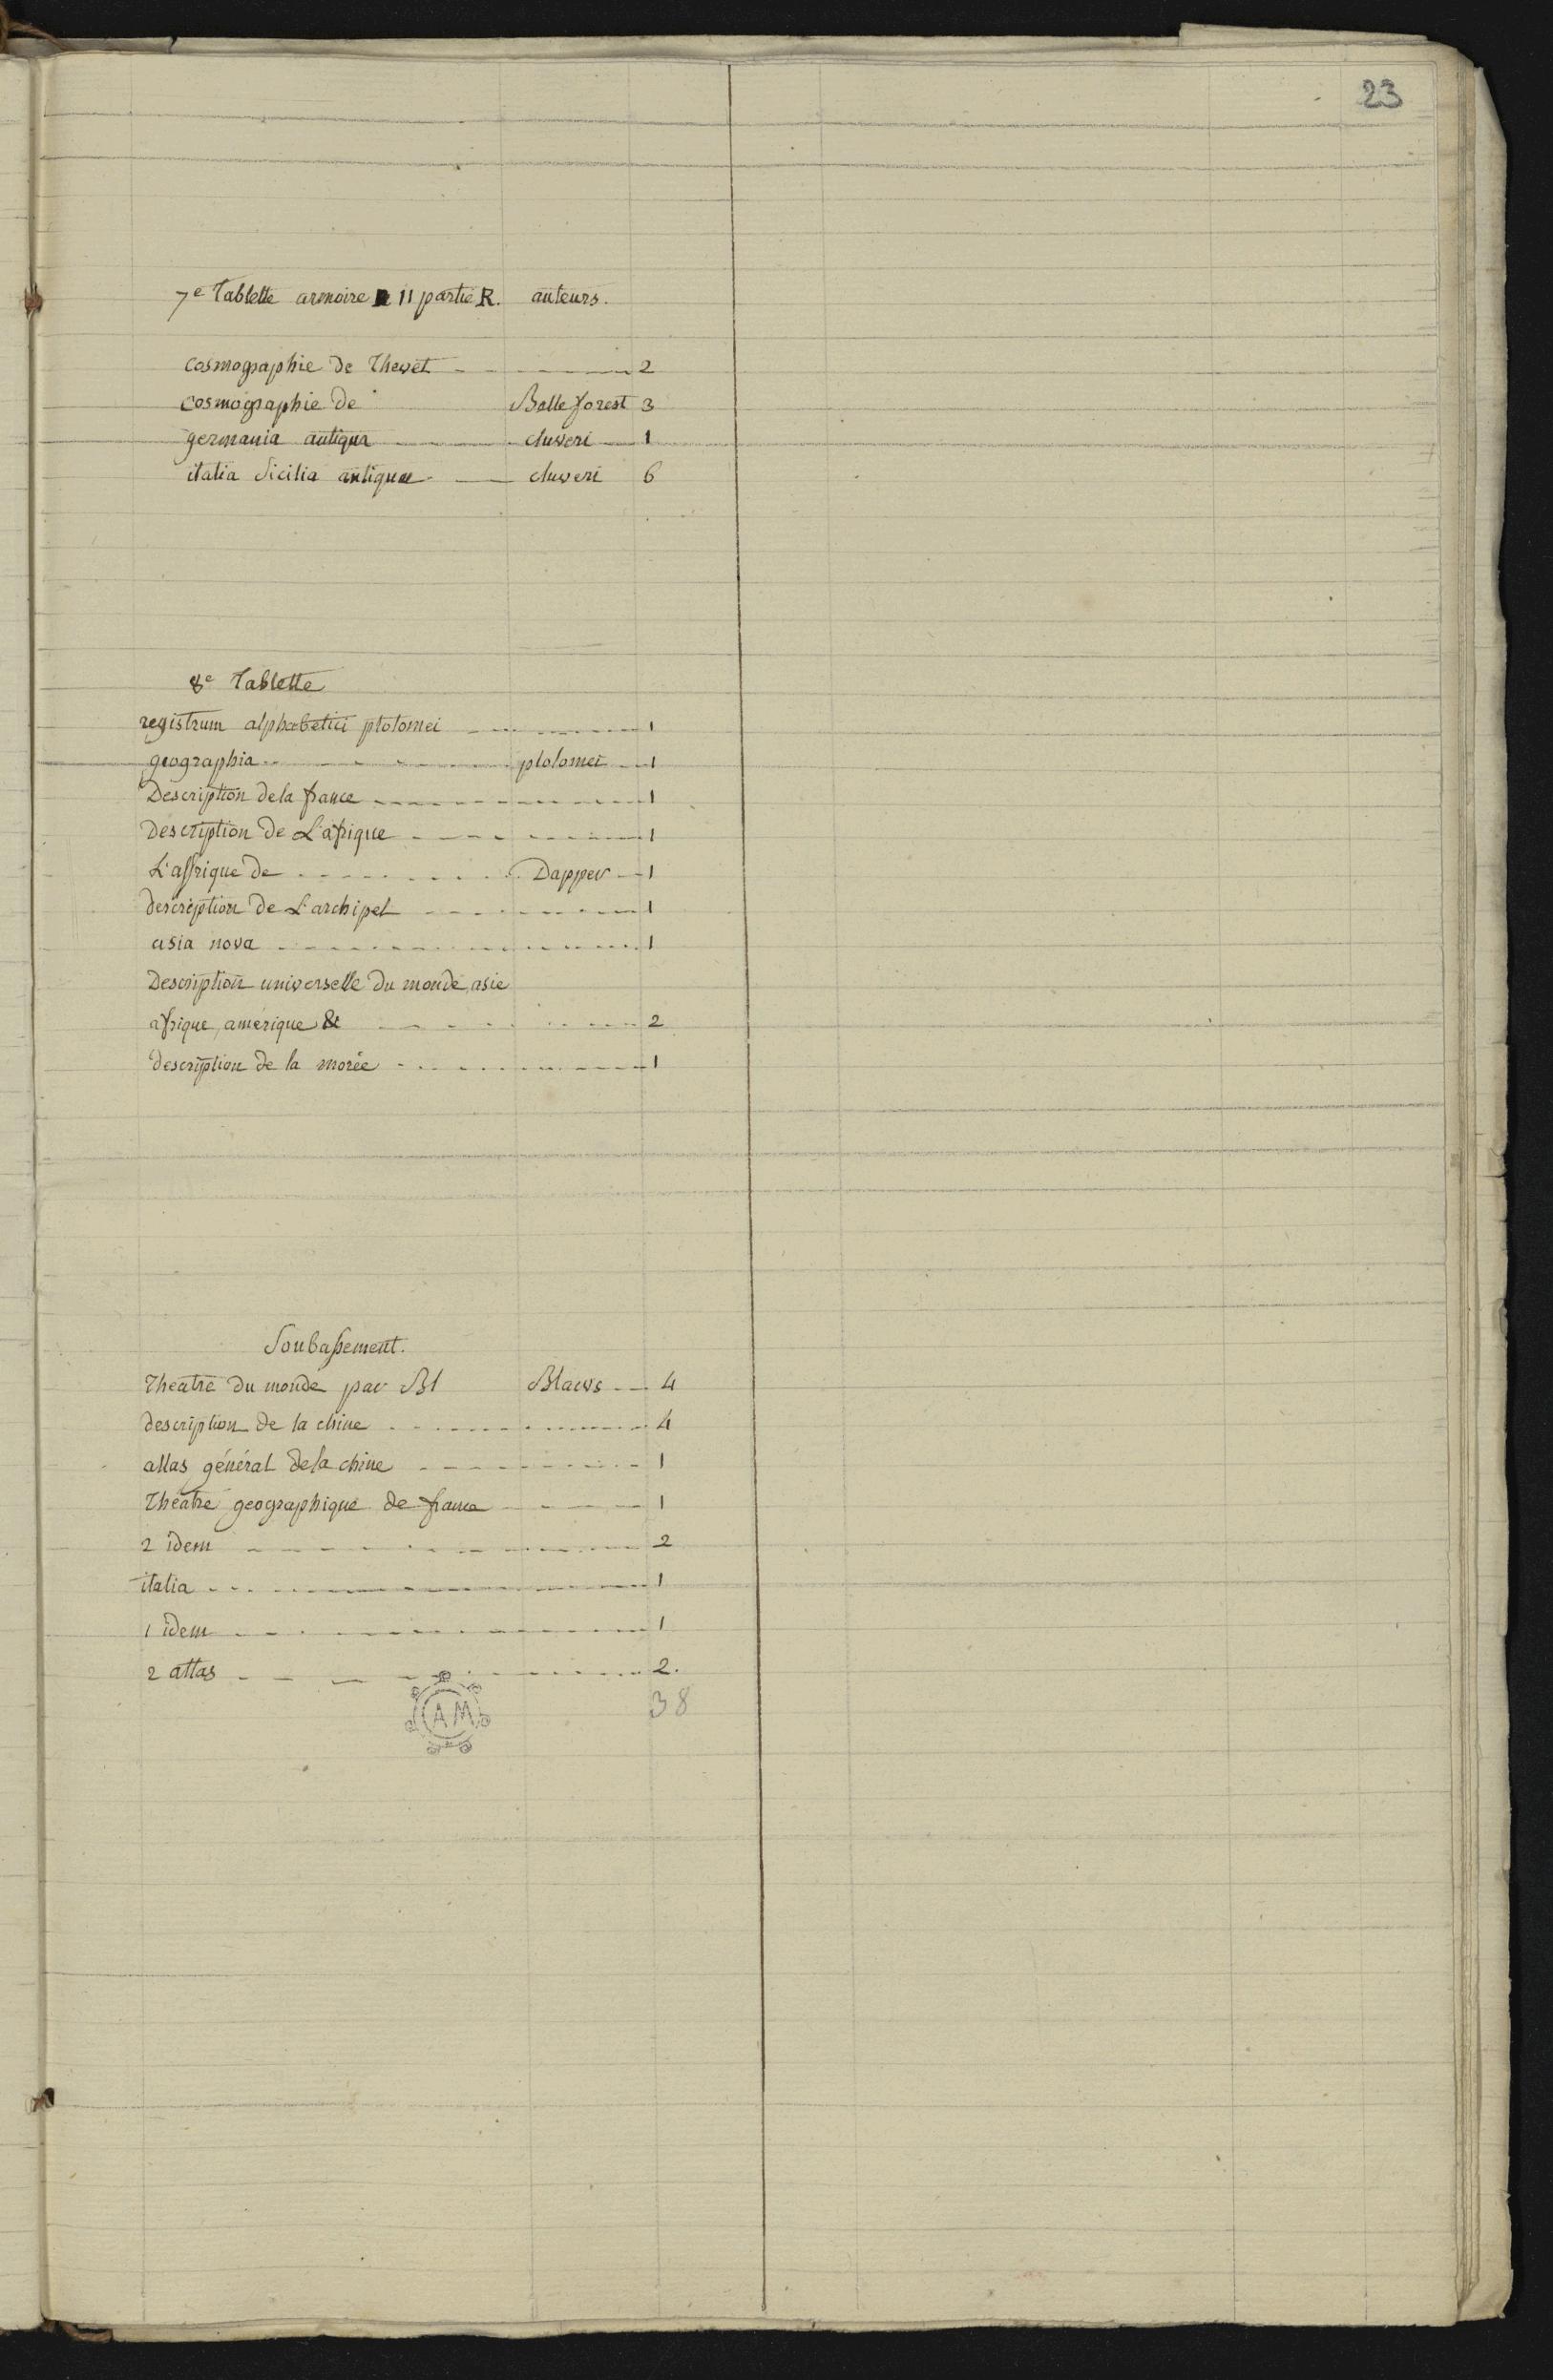 23
7e Tablette armoire 11 partie R. auteurs.
cosmographie de Thevet 2
cosmographie de Belleforest 3
germania antiqua cluveri 1
italia Sicilia antiquae cluveri 6
8e Tablette
registrum alphabetici ptolomei 1
geographia ptolomei 1
Description de la france 1
Description de L'afrique 1
L'affrique de Dapper 1
description de L'archipel 1
asia nova 1
Description universelle du monde, asie
afrique, amérique & 2
description de la morée 1
Soubassement.
Theatre du monde par Bl Blaews 4
description de la chine 4
atlas général de la chine 1
Théatre geographique de france 1
2 idem 2
italia 1
1 idem 1
2 atlas 2.
38
AM